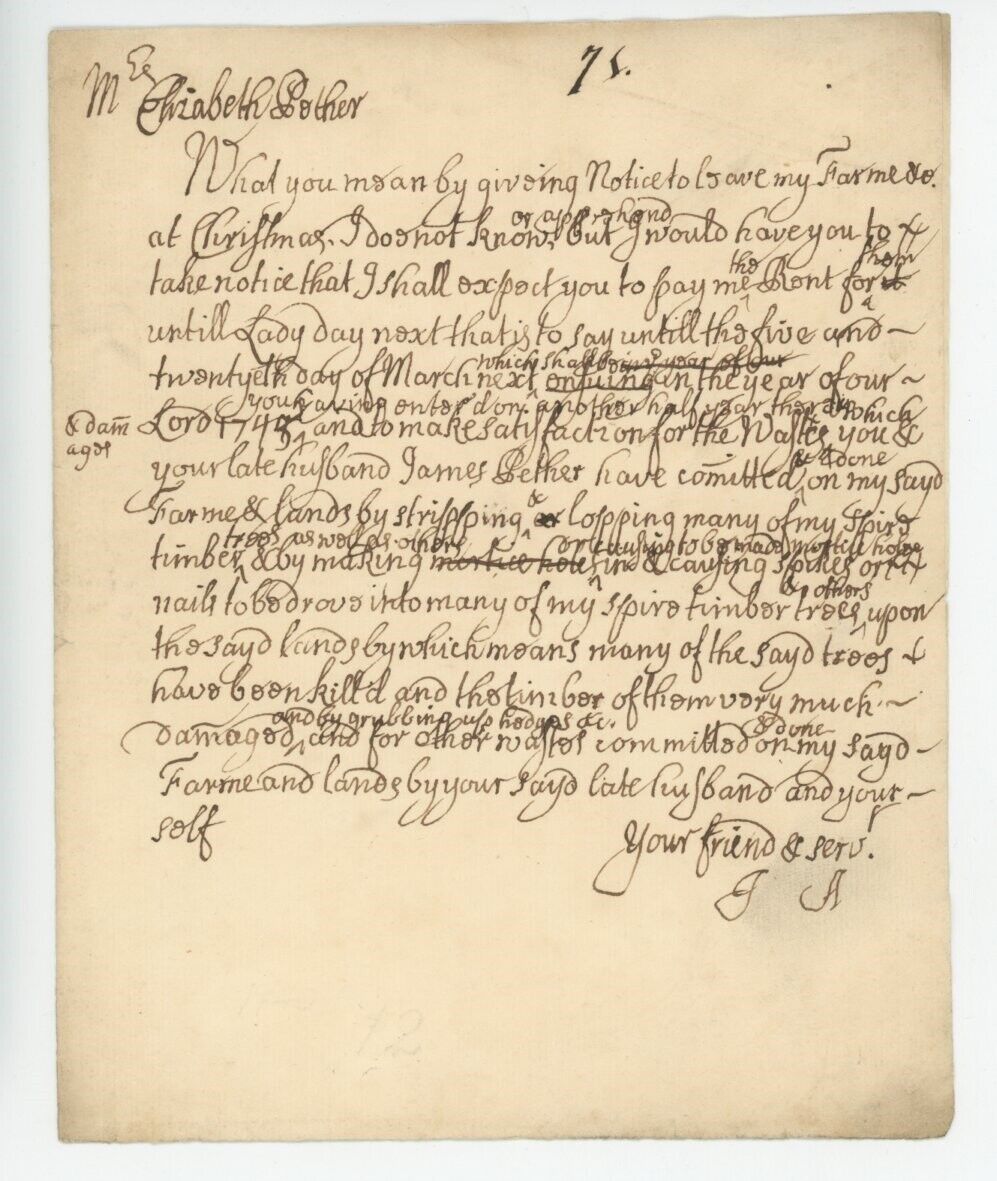 71.
Mrs Elizabeth Pether
What you mean by giveing Notice to leave my Farme &c.
at Christmas, I doe not know, or apprehend but I would have you to
take notice that I shall expect you to pay me the Rent for it them
untill Lady day next that is to say untill the five and
twentyeth day of March next ensuing which shall be in ye year of our in the year of our
Lord 1743 you having enter'd on another half year therein and to make satisfaction for the Wastes & damages which you &
your late husband James Pether have comitted & done on my sayd
Farme & lands by stripping or & lopping many of my spire
timber trees as well as others & by making mortice holes or causing to be made mortice holes in & causing spikes or
nails to be drove into many of my spire timber trees & others upon
the sayd lands by which means many of the sayd trees
have been kill'd and the timber of them very much
damaged, and by grubbing up hedges &c. and for other wastes committed & done on my sayd
Farme and lands by your sayd late husband and your
self
Your friend & servt.
J A
72